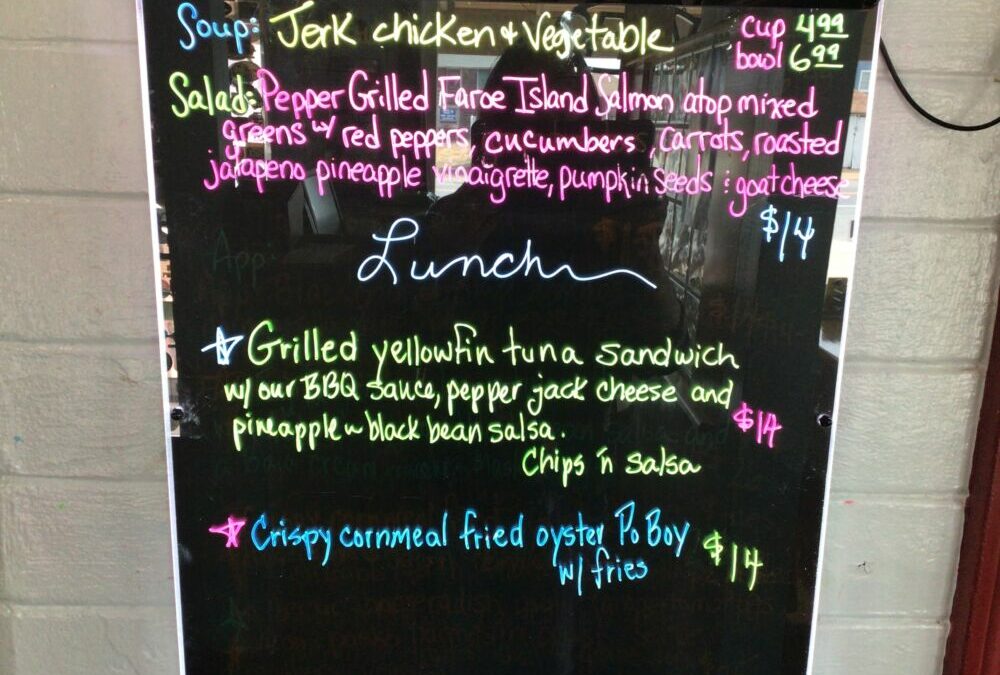 Soup: Jerk chicken & Vegetable cup 4.99
bowl 6.99
Salad: Pepper Grilled Faroe Island Salmon atop mixed
greens w/ red peppers, cucumbers, carrots, roasted
jalapeno pineapple vinaigrette, pumpkin seeds & goat cheese
$14
App:
Lunch
Grilled yellowfin tuna sandwich
w/ our BBQ sauce, pepper jack cheese and
pineapple ~ black bean salsa. $14
Chips 'n salsa
Crispy cornmeal fried oyster Po Boy $14
w/ fries